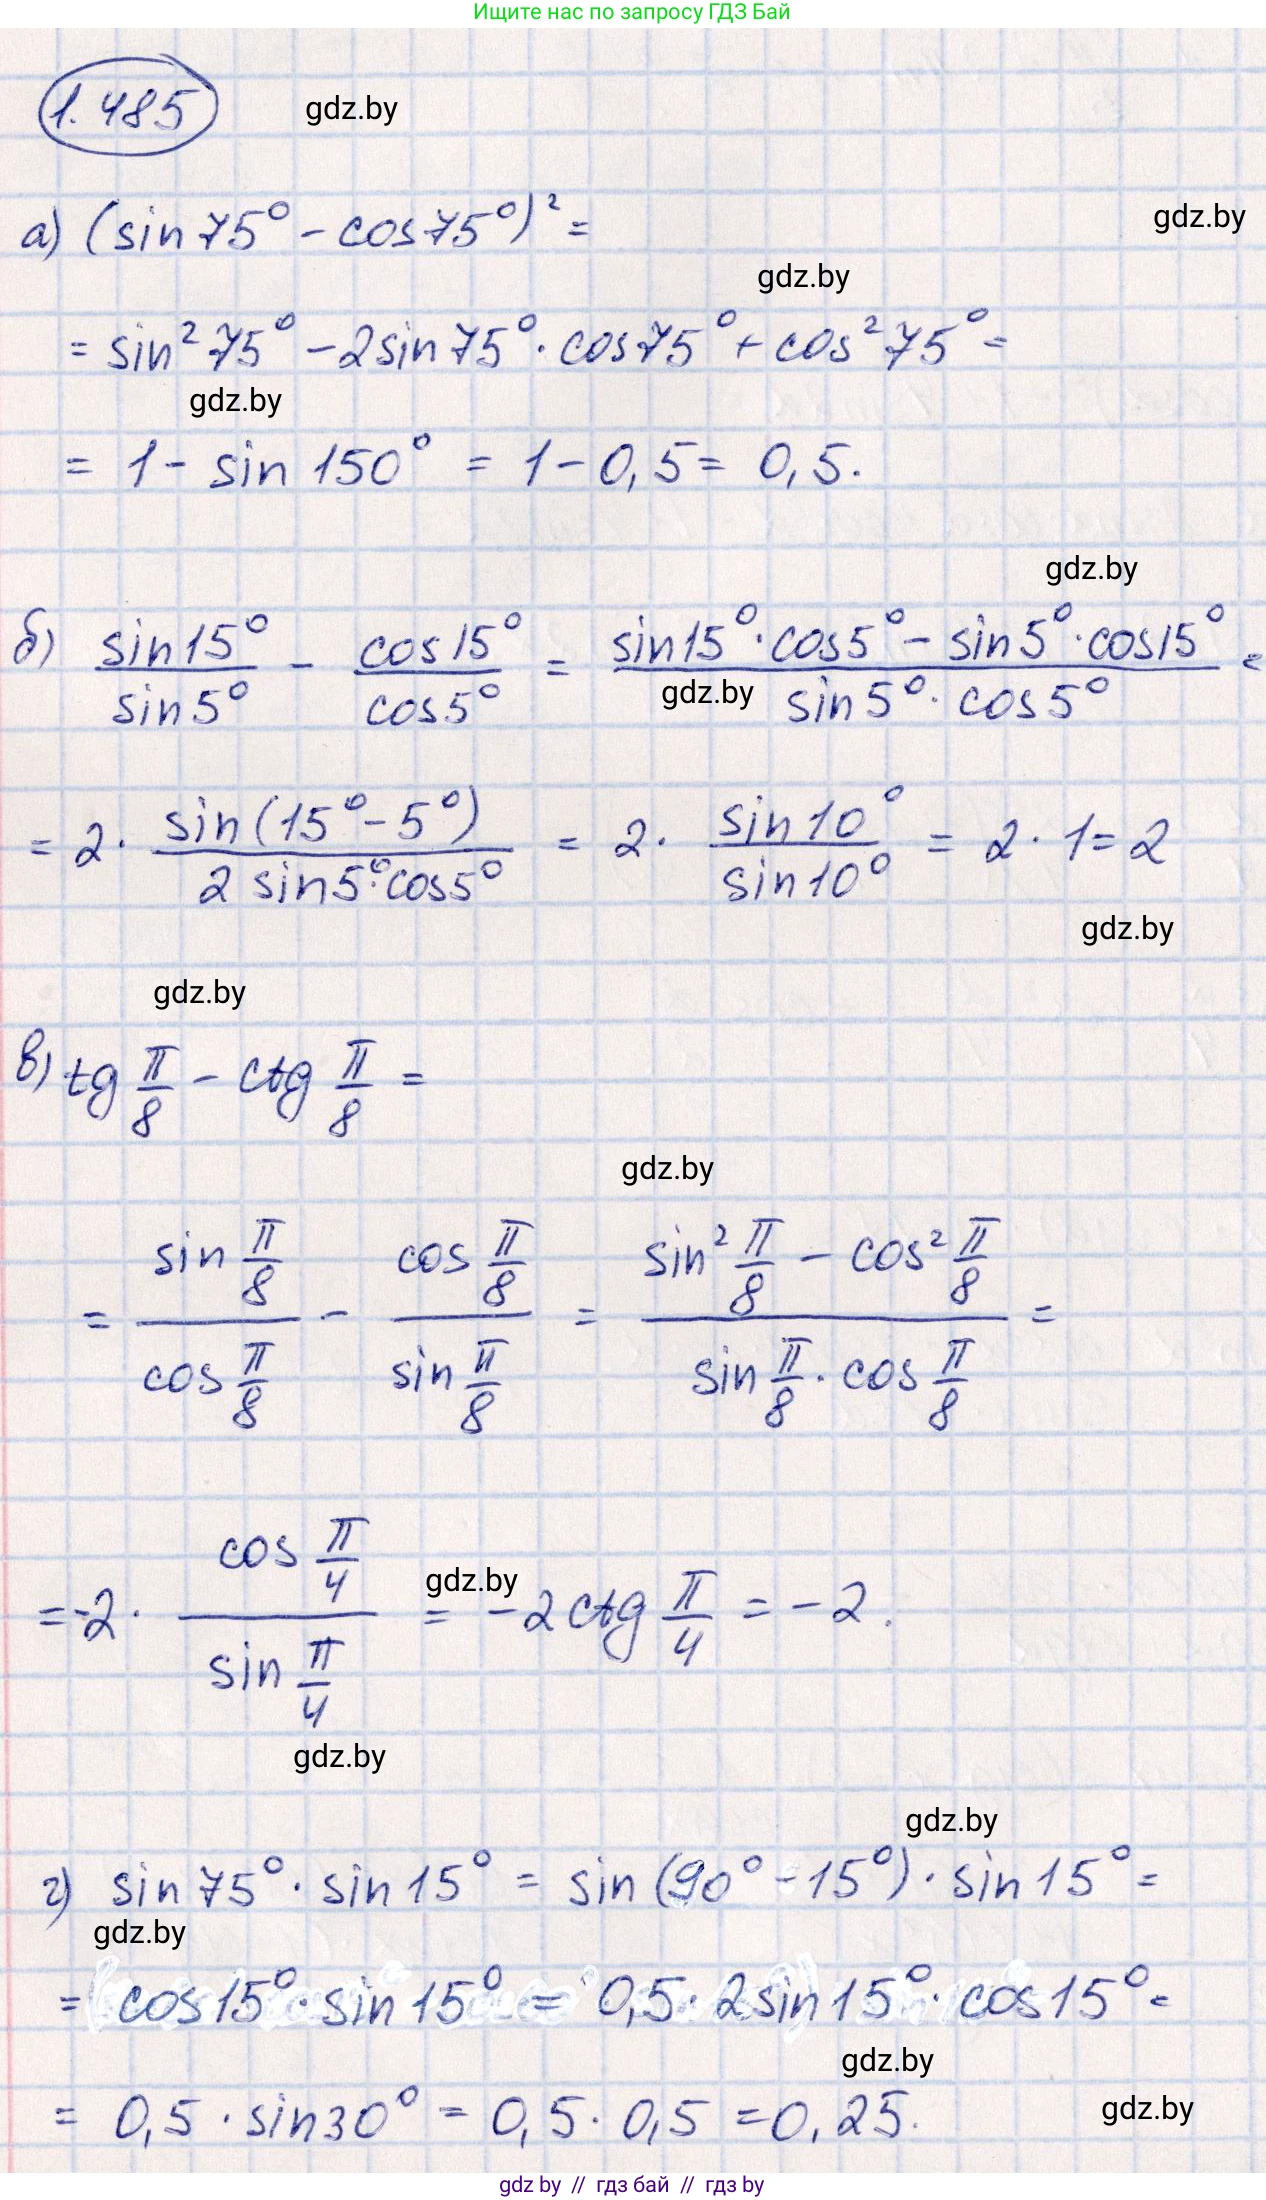 Ищите нас по запросу ГДЗ Бай
1.485 gdz.by
а) (sin 75° - cos 75°)² = gdz.by
gdz.by
= sin² 75° - 2 sin 75° · cos 75° + cos² 75° =
gdz.by
= 1 - sin 150° = 1 - 0,5 = 0,5.
gdz.by
б) sin 15° / sin 5° - cos 15° / cos 5° = (sin 15° · cos 5° - sin 5° · cos 15°) / (sin 5° · cos 5°) =
gdz.by
= 2 · sin (15° - 5°) / (2 sin 5° · cos 5°) = 2 · sin 10° / sin 10° = 2 · 1 = 2
gdz.by
gdz.by
в) tg π/8 - ctg π/8 =
gdz.by
= sin π/8 / cos π/8 - cos π/8 / sin π/8 = (sin² π/8 - cos² π/8) / (sin π/8 · cos π/8) =
= -2 · cos π/4 / sin π/4 = -2 ctg π/4 = -2.
gdz.by
gdz.by
gdz.by
г) sin 75° · sin 15° = sin (90° - 15°) · sin 15° =
gdz.by
= cos 15° · sin 15° = 0,5 · 2 sin 15° · cos 15° =
gdz.by
= 0,5 · sin 30° = 0,5 · 0,5 = 0,25.
gdz.by
gdz.by // гдз бай // гдз by